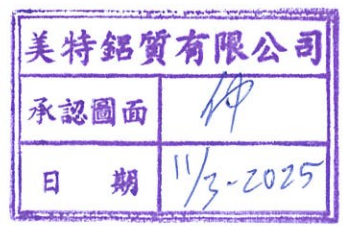 美特鋁質有限公司
承認圖面 仲
日期 11/3-2025